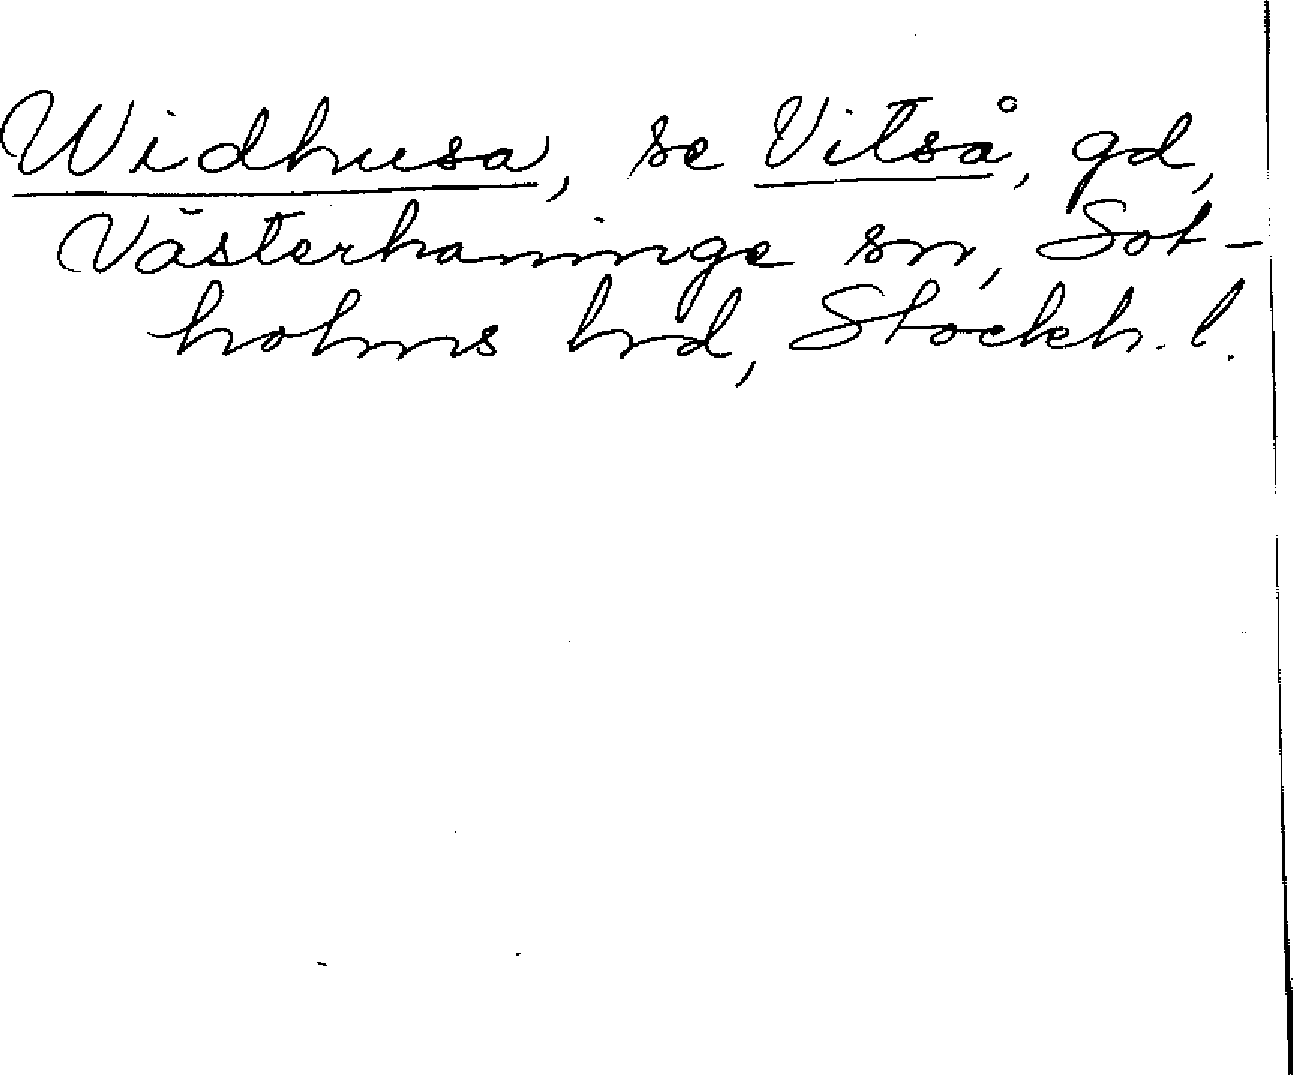 Widhusa, se Vitså, gd,
Västerhaninge sn, Sot-
holms hrd, Stockh. l.